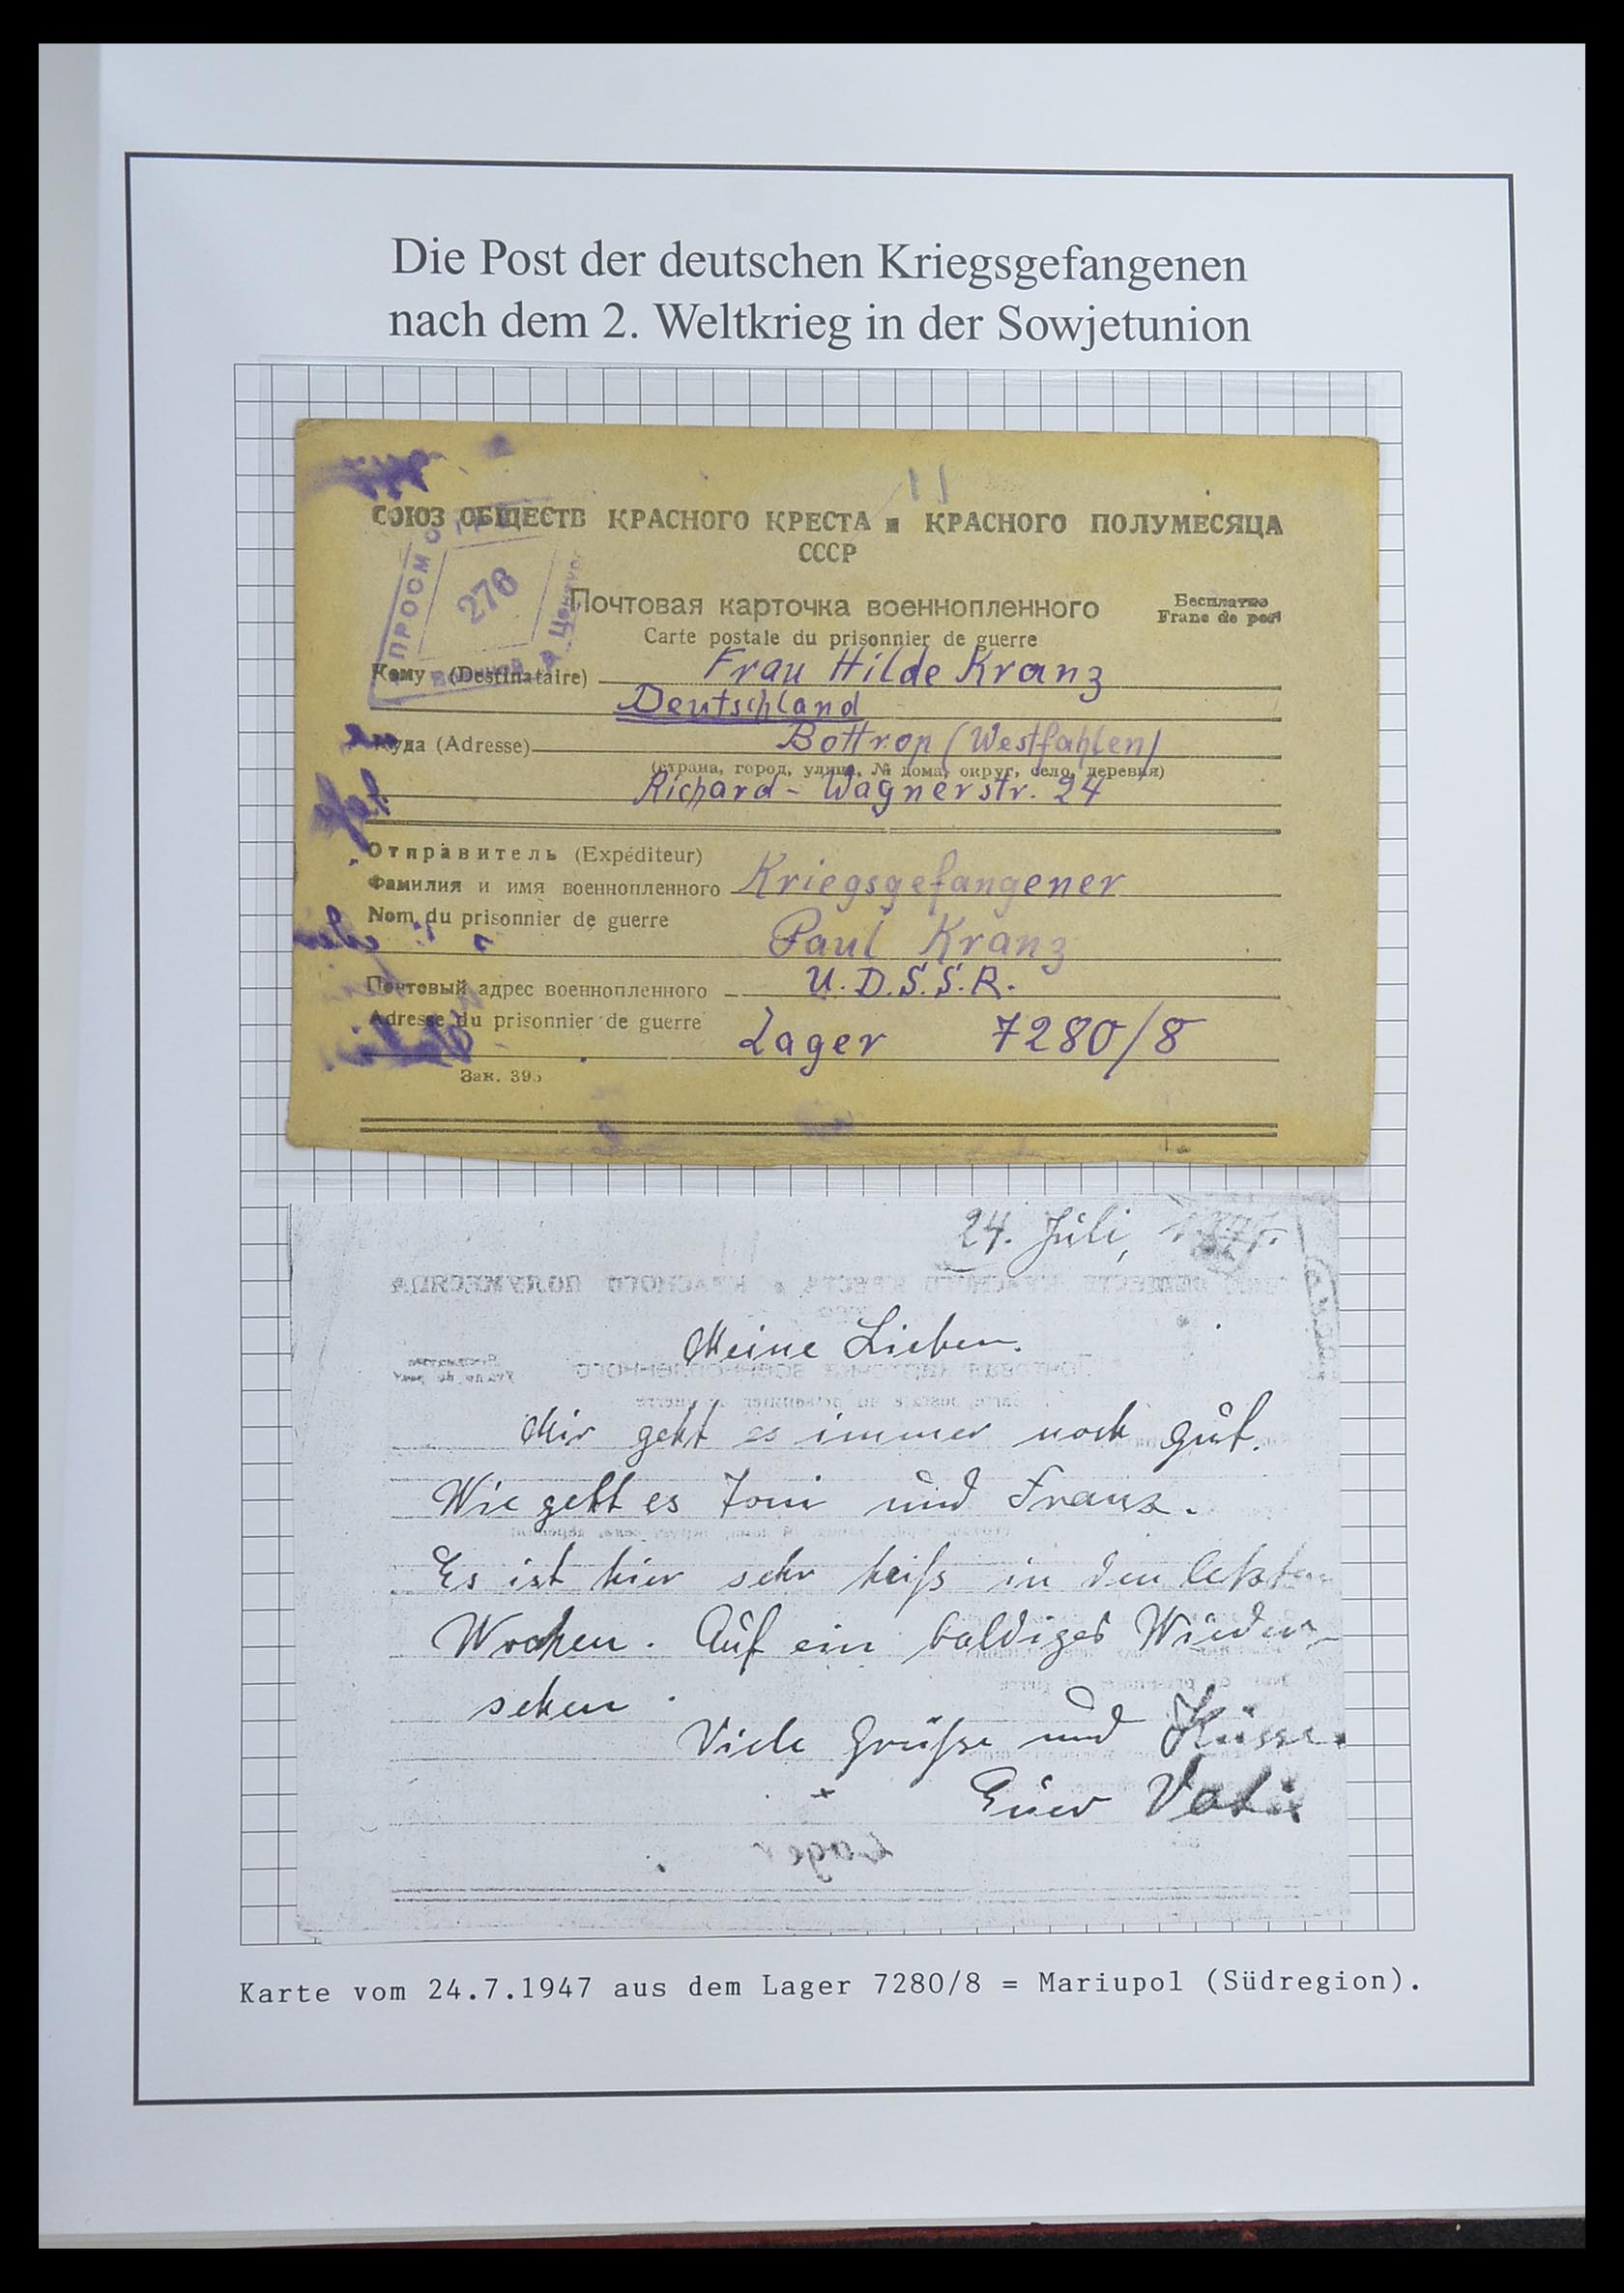 Die Post der deutschen Kriegsgefangenen
nach dem 2. Weltkrieg in der Sowjetunion
СОЮЗ ОБЩЕСТВ КРАСНОГО КРЕСТА и КРАСНОГО ПОЛУМЕСЯЦА
СССР
276
Почтовая карточка военнопленного
Бесплатно
Franc de port
Carte postale du prisonnier de guerre
Кому (Destinataire) Frau Hilde Kranz
Deutschland
Куда (Adresse) Bottrop (Westfahlen)
(страна, город, улица, № дома, округ, село, деревня)
Richard-Wagnerstr. 24
Отправитель (Expéditeur)
Фамилия и имя военнопленного Kriegsgefangener
Nom du prisonnier de guerre
Paul Kranz
Почтовый адрес военнопленного U.D.S.S.R.
Adresse du prisonnier de guerre
Lager 7280/8
Зак. 395
24. Juli,
Meine Lieben.
Mir geht es immer noch gut.
Wie geht es Toni und Franz.
Es ist hier sehr heiß in den letzten
Wochen. Auf ein baldiges Wieder-
sehen.
Viele Grüße und Küsse.
Euer Vati
Karte vom 24.7.1947 aus dem Lager 7280/8 = Mariupol (Südregion).